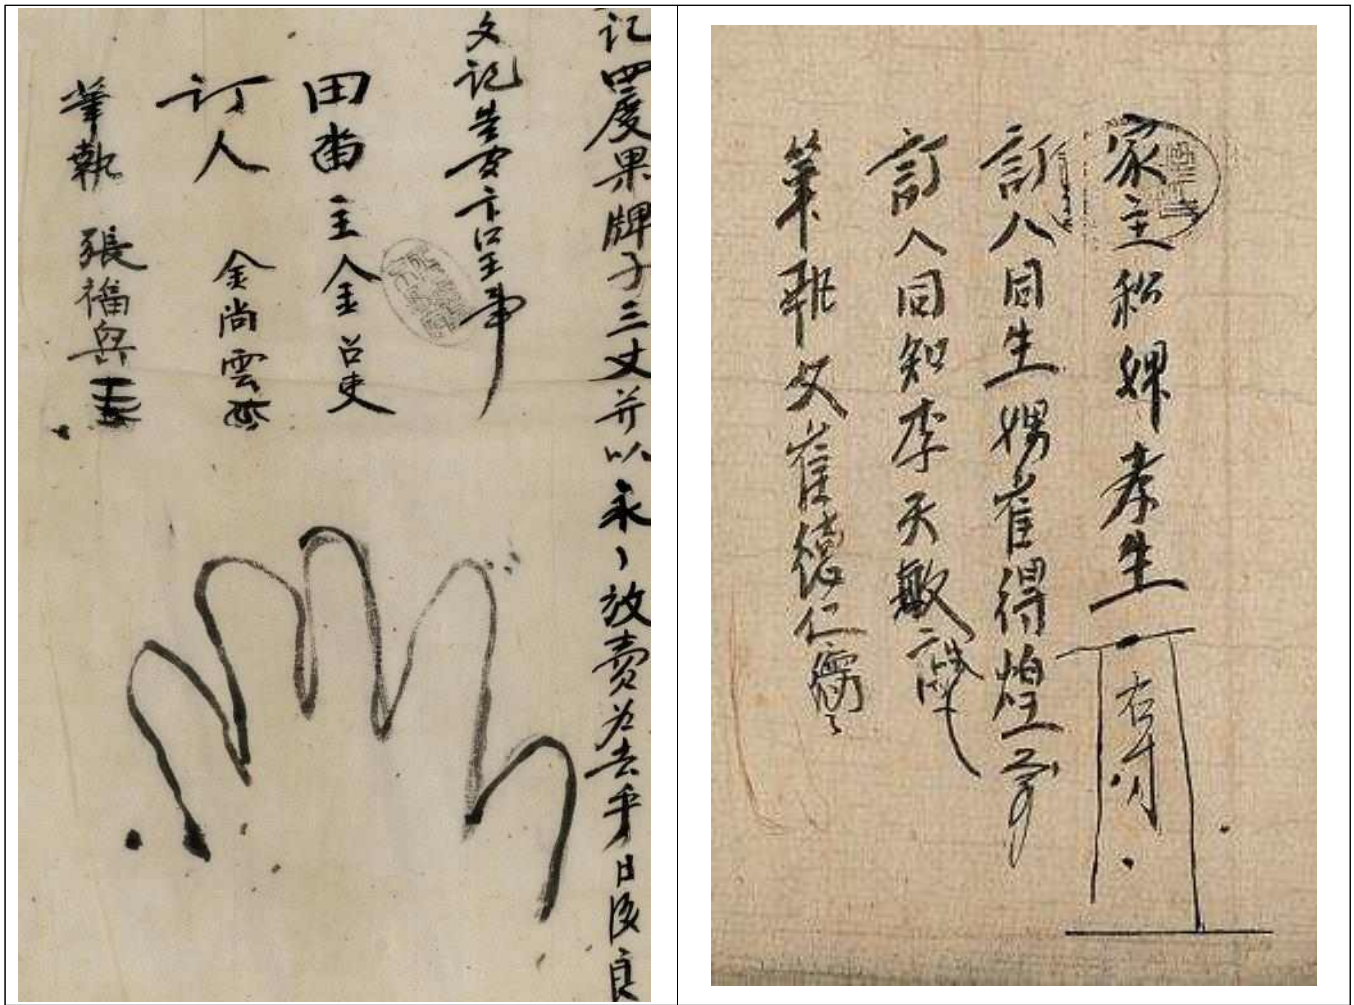 記四度果牌子三丈并以永〻放賣為去乎日後良
文記告官卞呈事
田畓主金召吏
訂人 金尚雲
筆執 張福興
家主私婢孝生
右寸
訂人同生娚崔得煌
訂人同知李天敏
筆執父崔德仁